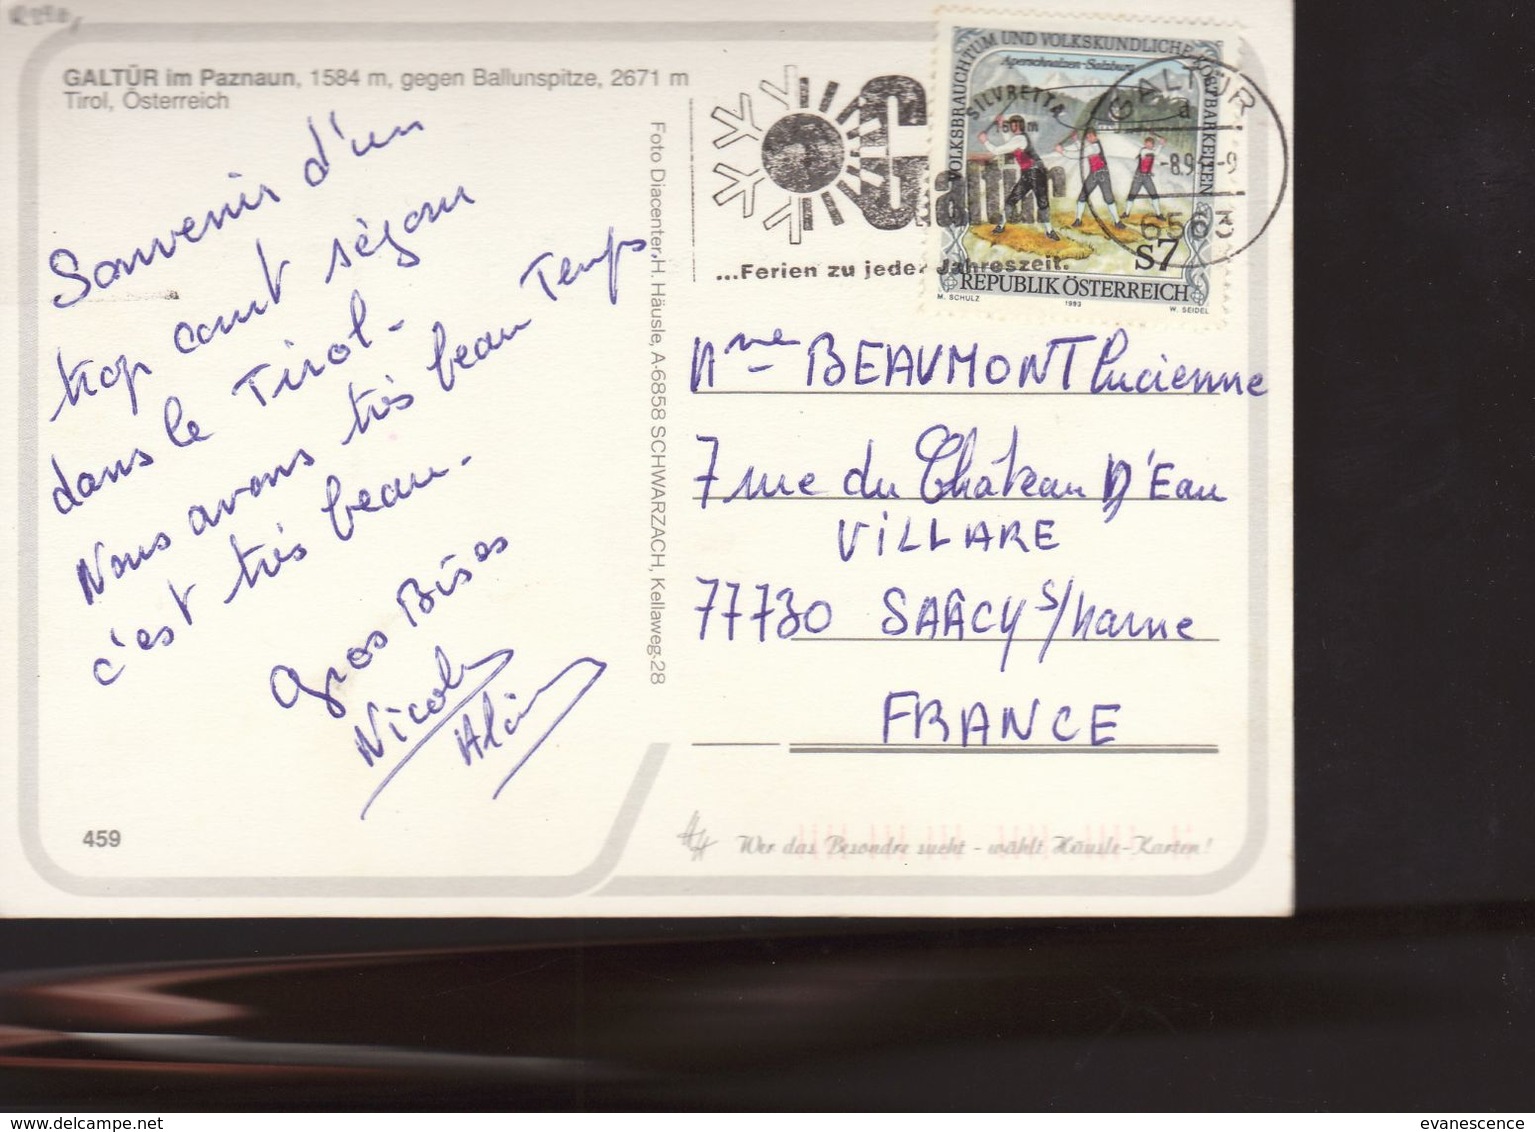 GALTÜR im Paznaun, 1584 m, gegen Ballunspitze, 2671 m
Tirol, Österreich
Souvenir d'un
trop court séjour
dans le Tirol-
Nous avons très beau Temps,
c'est très beau.
Gros Bises
Nicole
Alain
459
Foto Diacenter, H. Häusle, A-6858 SCHWARZACH, Kellaweg 28
Galtür
...Ferien zu jeder Jahreszeit.
SILVRETTA
1600m
GALTÜR
a
6563
VOLKSBRAUCHTUM UND VOLKSKUNDLICHE KOSTBARKEITEN
Aperschnalzen-Salzburg
S7
REPUBLIK ÖSTERREICH
M. SCHULZ 1993 W. SEIDEL
Mme BEAUMONT Lucienne
7 rue du Château D'Eau
ViLLARE
77730 SAÂCY s/Marne
FRANCE
Wer das Besondre sucht - wählt Häusle-Karten!
delcampe.net
evanescence